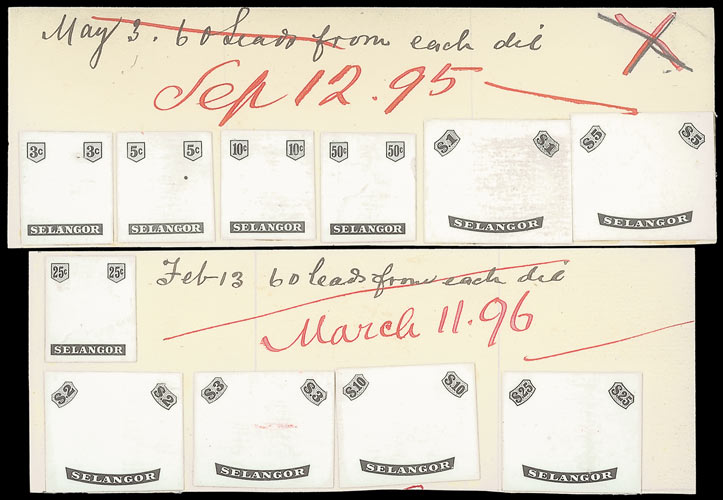 May 3. 60 leads from each die
Sep 12.95
3c 3c
SELANGOR
5c 5c
SELANGOR
10c 10c
SELANGOR
50c 50c
SELANGOR
S.1 S.1
SELANGOR
S.5 S.5
SELANGOR
25c 25c
SELANGOR
Feb 13 60 leads from each die
March 11.96
S.2 S.2
SELANGOR
S.3 S.3
SELANGOR
S.10 S.10
SELANGOR
S.25 S.25
SELANGOR